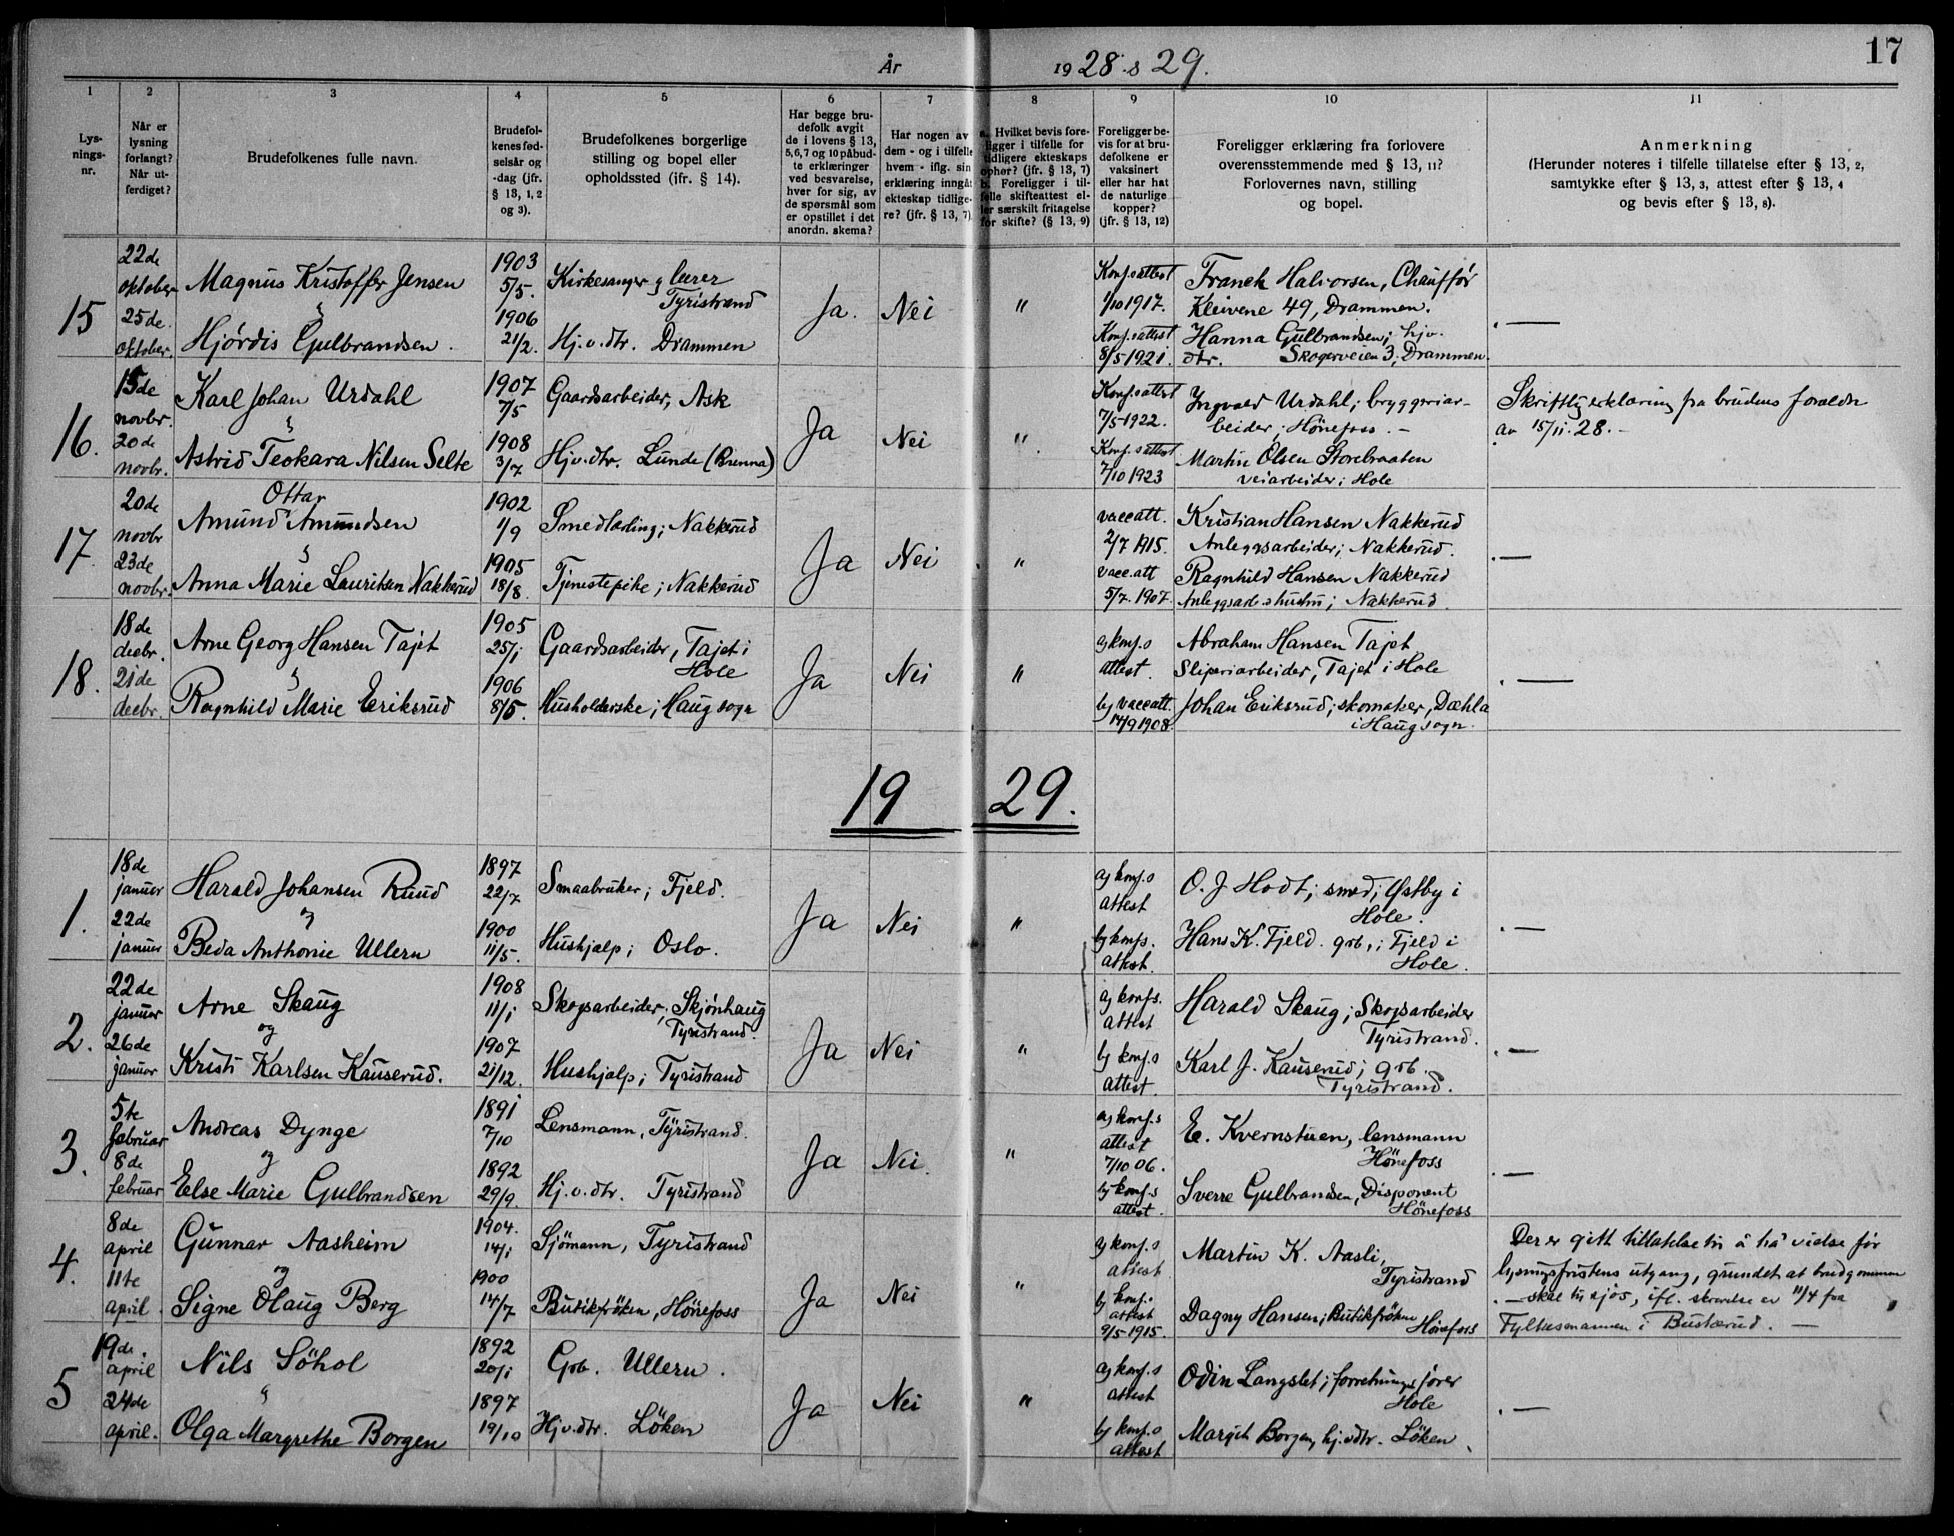 17
År 1928 & 29.
1
2
3
4
5
6
7
8
9
10
11
Lys-
nings-
nr.
Når er
lysning
forlangt?
Når ut-
ferdiget?
Brudefolkenes fulle navn.
Brudefol-
kenes fød-
selsår og
-dag (jfr.
§ 13, 1, 2
og 3).
Brudefolkenes borgerlige
stilling og bopel eller
opholdssted (ifr. § 14).
Har begge bru-
defolk avgit
de i lovens § 13,
5, 6, 7 og 10 påbud-
te erklæringer
ved besvarelse,
hver for sig, av
de spørsmål som
er opstillet i det
anordn. skema?
Har nogen av
dem - og i tilfelle
hvem - iflg. sin
erklæring inngåt
ekteskap tidlige-
re? (jfr. § 13, 7)
a. Hvilket bevis fore-
ligger i tilfelle for
tidligere ekteskaps
ophør? (jfr. § 13, 7)
b. Foreligger i til-
felle skifteattest el-
ler særskilt fritagelse
for skifte? (§ 13, 9)
Foreligger be-
vis for at bru-
defolkene er
vaksinert
eller har hat
de naturlige
kopper?
(jfr. § 13, 12)
Foreligger erklæring fra forlovere
overensstemmende med § 13, 11?
Forlovernes navn, stilling
og bopel.
Anmerkning
(Herunder noteres i tilfelle tillatelse efter § 13, 2,
samtykke efter § 13, 3, attest efter § 13, 4
og bevis efter § 13, 8).
15
22de
oktober
25de.
oktober.
Magnus Kristoffer Jensen
"
Hjørdis Gulbrandsen.
1903
5/5.
1906
21/2.
Kirkesanger og lærer
Tyristrand
Hj.v.dtr. Drammen
Ja.
Nei
"
Konf.sattest
1/10 1917.
Konf.sattest
8/5 1921.
Franck Halvorsen, Chauffør
Kleivene 49, Drammen.
Hanna Gulbrandsen; hjv.
dtr. Skogerveien 3, Drammen.
. —
16.
15de
novbr.
20de
novbr.
Karl Johan Urdahl
"
Astrid Teokara Nilsen Selte
1907
7/5
1908
3/7
Gaardsarbeider, Ask
Hjv.dtr. Lunde (Brenna)
Ja
Nei
"
Konf.sattest
7/5 1922.
Konf.sattest
7/10 1923
Yngvald Urdahl; bryggeriar-
beider; Hönefoss. -
Martin Olsen Storebraaten
veiarbeider; Hole
Skriftlig erklæring fra brudens foreldre
av 15/11.28. -
17.
20de
novbr
23de
novbr.
Ottar
Amund Amundsen
"
Anna Marie Lauritsen Nakkerud
1902
1/9
1905
18/8.
Smedlærling; Nakkerud
Tjenestepike; Nakkerud
Ja
Nei
"
vaccatt.
2/7 1915.
vacc.att
5/7. 1907
Kristian Hansen Nakkerud
Anleggsarbeider; Nakkerud.
Ragnhild Hansen Nakkerud
Anleggsarb.s hustru; Nakkerud.
. —
18.
18de
decbr.
21de
decbr.
Arne Georg Hansen Tajet
"
Ragnhild Marie Eriksrud
1905
25/1
1906
8/5.
Gaardsarbeider, Tajet i
Hole
Husholderske; Haug sogn
Ja
Nei
"
a) konf.s
attest.
b) vaccatt.
14/9 1908.
Abraham Hansen Tajet
Sliperiarbeider, Tajet i Hole
Johan Eriksrud; skomaker, Dæhla
i Haug sogn.
. —
1929.
1.
18de
januar
22de
januar
Harald Johansen Ruud
og
Beda Anthonie Ullern
1897
22/7
1900
11/5.
Smaabruker; Fjeld.
Hushjælp; Oslo.
Ja
Nei
"
a) konf.s
attest
b) konfs.
attest.
O. J. Hodt; smed; Østby i
Hole.
Hans K. Fjeld. grb.; Fjeld i
Hole.
. —
2.
22de
januar
26de
januar
Arne Skaug
og
Kristi Karlsen Kauserud.
1908
11/1
1907
21/12.
Skogsarbeider; Skjönhaug
Tyristrand.
Hushjælp; Tyristrand
Ja
Nei
"
a) konfs.
attest
b) konf.s
attest.
Harald Skaug; Skogsarbeider
Tyristrand.
Karl J. Kauserud; grb.
Tyristrand.
. —
3.
5te
februar
8de
februar
Andreas Dynge
og
Else Marie Gulbrandsen
1891
7/10
1892
29/9.
Lensmann, Tyristrand.
Hj.v.dtr. Tyristrand
Ja
Nei.
"
a) konf.s
attest
7/10 06.
b) konf.s
attest.
E. Kvernstuen, lensmann
Hönefoss
Sverre Gulbrandsen, Disponent
Hönefoss
. —
4.
8de
april
11te
april.
Gunnar Aasheim
og
Signe Olaug Berg
1904.
14/1
1900
14/7
Sjömann, Tyristrand
Butikfröken, Hönefoss
Ja
Nei
"
a) konf.s
attest
b) konf.s
attest
9/5 1915.
Martin K. Aasli,
Tyristrand
Dagny Hansen; Butikfröken
Hönefoss
Der er gitt tillatelse til å få vielse för
lysningsfristens utgang, grundet at brudgommen
. — skal til sjös, ifl. skrivelse av 11/4 fra
Fylkesmannen i Buskerud. —
5
19de.
april
24de
april.
Nils Söhol
"
Olga Margrethe Borgen
1892
20/1
1897
19/10
Grb. Ullern.
Hjv.dtr. Löken
Ja
Nei
"
a) konf.s
attest
b) konf.s
attest
Odin Langslet; forretningsförer
Hole
Margit Borgen, hj.vdtr. Löken.
. —